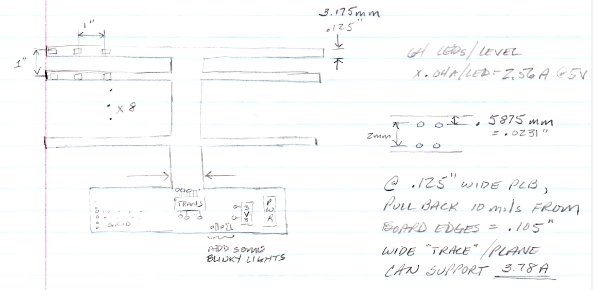 3.175mm
.125"
1"
1"
x 8
64 LEDS/LEVEL
x .04A/LED = 2.56A @5V
2mm
.5875mm
= .0231"
@ .125" WIDE PCB,
PULL BACK 10 mils FROM
BOARD EDGES = .105"
WIDE "TRACE"/PLANE
CAN SUPPORT 3.78A
TRANS
GRID
PWR
ADD SOME
BLINKY LIGHTS